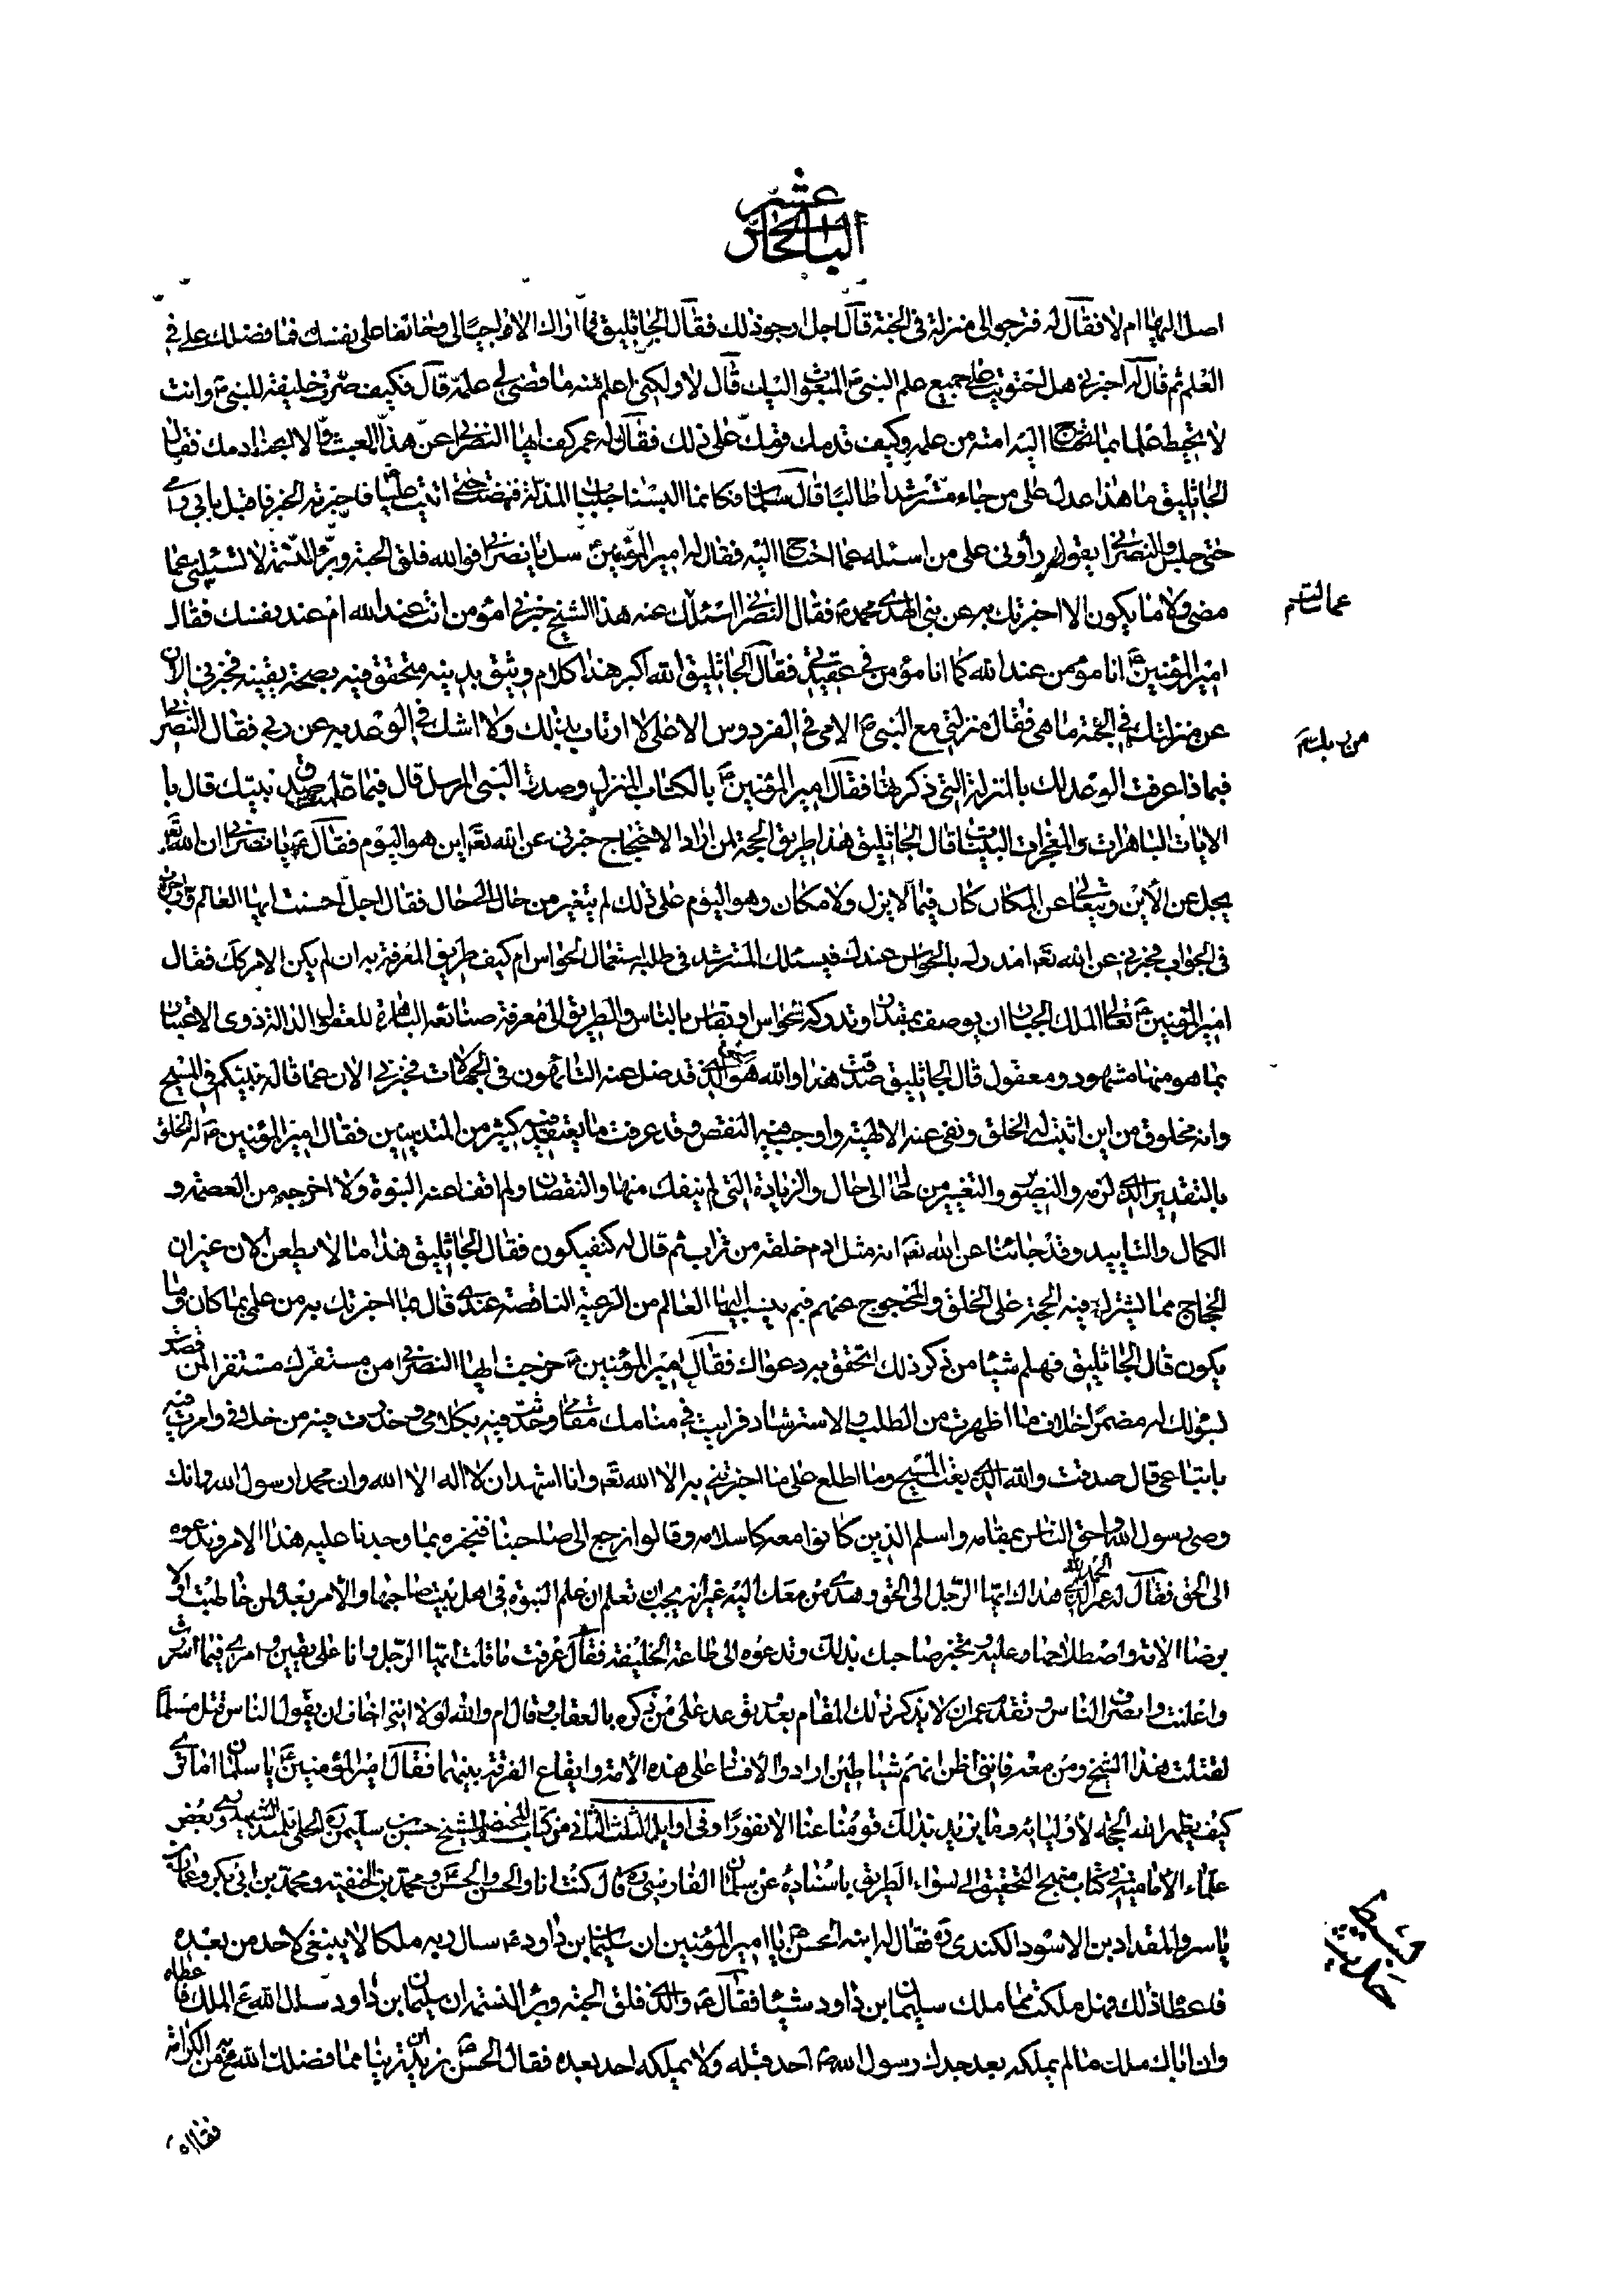 الباب الحادي عشر
اصل اليها ام لا فقال له فترجو الى منزلة في الجنة قال اجل ارجو ذلك فقال الجاثليق فما اراك الا راجيا لي وخائفا على نفسك فما فضلك علي في
العلم ثم قال له اخبرني هل احتويت على جميع علم النبي المبعوث اليك قال لا ولكني اعلم منه ما قضى لي علمه قال فكيف صرت خليفة للنبي وانت
لا تحيط علما بما تحتاج اليه امته من علمه وكيف قدمك قومك على ذلك فقال له عمر كف ايها النصراني عن هذا العبث والا ابحنا دمك فقال
الجاثليق ما هذا عدل على من جاء مسترشدا طالبا قال سلمان فكانما البسنا جلباب المذلة فنهضت حتى اتيت عليا فاخبرته الخبر فاقبل بابي وامي
حتى جلس والنصراني يقول دلوني على من اسئله عما احتاج اليه فقال له امير المؤمنين سل يا نصراني فوالله فلق الحبة وبرئ النسمة لا تسئلني عما
مضى ولا ما يكون الا اخبرتك به عن نبي الهدى محمد فقال النصراني اسئلك عما سئلت عنه هذا الشيخ خبرني امؤمن انت عند الله ام عند نفسك فقال
امير المؤمنين انا مؤمن عند الله كما انا مؤمن في عقيدتي فقال الجاثليق الله اكبر هذا كلام وثيق بدينه متحقق فيه بصحة يقينه فخبرني الان
عن منزلتك في الجنة ما هي فقال منزلتي مع النبي الامي في الفردوس الاعلى لا ارتاب بذلك ولا اشك في الوعد به من ربي فقال النصراني
فبماذا عرفت الوعد لك بالمنزلة التي ذكرتها فقال امير المؤمنين بالكتاب المنزل وصدق النبي المرسل قال فبما علمت صدق نبيك قال با
الايات الباهرات والمعجزات البينات قال الجاثليق هذا طريق الحجة لمن اراد الاحتجاج خبرني عن الله تعالى اين هو اليوم فقال يا نصراني ان الله
يجل عن الاين ويتعالى عن المكان كان فيما لم يزل ولا مكان وهو اليوم على ذلك لم يتغير من حال الى حال فقال اجل احسنت ايها العالم واوجزت
في الجواب فخبرني عن الله تعالى امدرك بالحواس عندك فيسئلك المسترشد في طلبه استعمال الحواس ام كيف طريق المعرفة به ان لم يكن الامر كك فقال
امير المؤمنين تعالى الملك الجبار ان يوصف بمقدار او تدركه الحواس او يقاس بالناس والطريق الى معرفته صنائعه الباهرة للعقول الدالة ذوى الاعتبار
بما هو منها مشهود ومعقول قال الجاثليق صدقت هذا والله هو الحق الذي قد ضل عنه التائهون في الجهالات فخبرني الان عما قاله نبيكم في المسيح
وانه مخلوق من اين اثبت له الخلق ونفى عنه الالهية واوجب فيه النقص وقد عرفت ما يعتقد فيه كثير من المتدينين فقال امير المؤمنين اثبت له الخلق
بالتقدير الذي لزمه والتصوير والتغيير من حال الى حال والزيادة التي لم ينفك منها والنقصان ولم انف عنه النبوة ولا اخرجه من العصمة و
الكمال والتاييد وقد جائنا عن الله تعالى انه مثل ادم خلقه من تراب ثم قال له كن فيكون فقال الجاثليق هذا ما لا يطعن الان غير ان
الحجاج مما يشترك فيه الحجة على الخلق والمحجوج عنهم فبم يبنت ايها العالم من الرعية الناقصة عندي قال بما اخبرتك به من علمي بما كان وما
يكون قال الجاثليق فهلم شيئا من ذكر ذلك اتحقق به دعواك فقال امير المؤمنين خرجت ايها النصراني من مستقرك مستفزا لمن قصدت
لسؤالك له مضمرا خلاف ما اظهرت من الطلب والاسترشاد فرايت في منامك مقامي وحدثت فيه بكلامي وحذرت فيه من خلافي وامرت فيه
باتباعي قال صدقت والله الذي بعث المسيح وما اطلع على ما اخبرتني به الا الله تعالى وانا اشهد ان لا اله الا الله وان محمدا رسول الله وانك
وصي رسول الله واحق الناس بمقامه واسلم الذين كانوا معه كاسلامه وقالوا نرجع الى صاحبنا فنخبره بما وجدنا عليه هذا الامر وندعوه
الى الحق فقال له عمر الحمد لله الذي هداك ايها الرجل الى الحق وهدى من معك اليه غير انه يجب ان تعلم ان علم النبوة في اهل بيت صاحبها والامر بعده لمن خاطبت اولا
برضا الامة واصطلاحها عليه وتخبر صاحبك بذلك وتدعوه الى طاعة الخليفة فقال عرفت ما قلت ايها الرجل وانا على يقين من امري فيما اسررت
واعلنت وانصرف الناس وتقدم عمر ان لا يذكر ذلك المقام بعد وتوعد على من ذكره بالعقاب وقال ام والله لولا انني اخاف ان يقول الناس قتل مسلما
لقتلت هذا الشيخ ومن معه فانني اظن انهم شياطين ارادوا الافساد على هذه الامة وايقاع الفرقة بينها فقال امير المؤمنين يا سلمان اما ترى
كيف يظهر الله الحجة لاوليائه وما يزيد بذلك قومنا عنا الا نفورا وفي اوايل الثلث الثاني من كتاب المحتضر للشيخ حسن بن سليمن الحلي تلميذ الشهيد وبعض
علماء الامامية في كتاب منهج التحقيق الى سواء الطريق باسناده عن سلمان الفارسي قال كنت انا والحسن والحسين ومحمد بن الحنفية ومحمد بن ابي بكر وعمار بن
ياسر والمقداد بن الاسود الكندي فقال له ابنه الحسن يا امير المؤمنين ان سليمان ابن داود سال ربه ملكا لا ينبغي لاحد من بعده
فاعطاه ذلك فهل ملكت مما ملك سليمان ابن داود شيئا فقال والذي فلق الحبة وبرئ النسمة ان سليمان بن داود سال الله الملك فاعطاه
وان اباك ملك ما لم يملكه بعد جدك رسول الله احد قبله ولا يملكه احد بعده فقال الحسن نريد ان ترينا مما فضلك الله من الكرامة
فقال